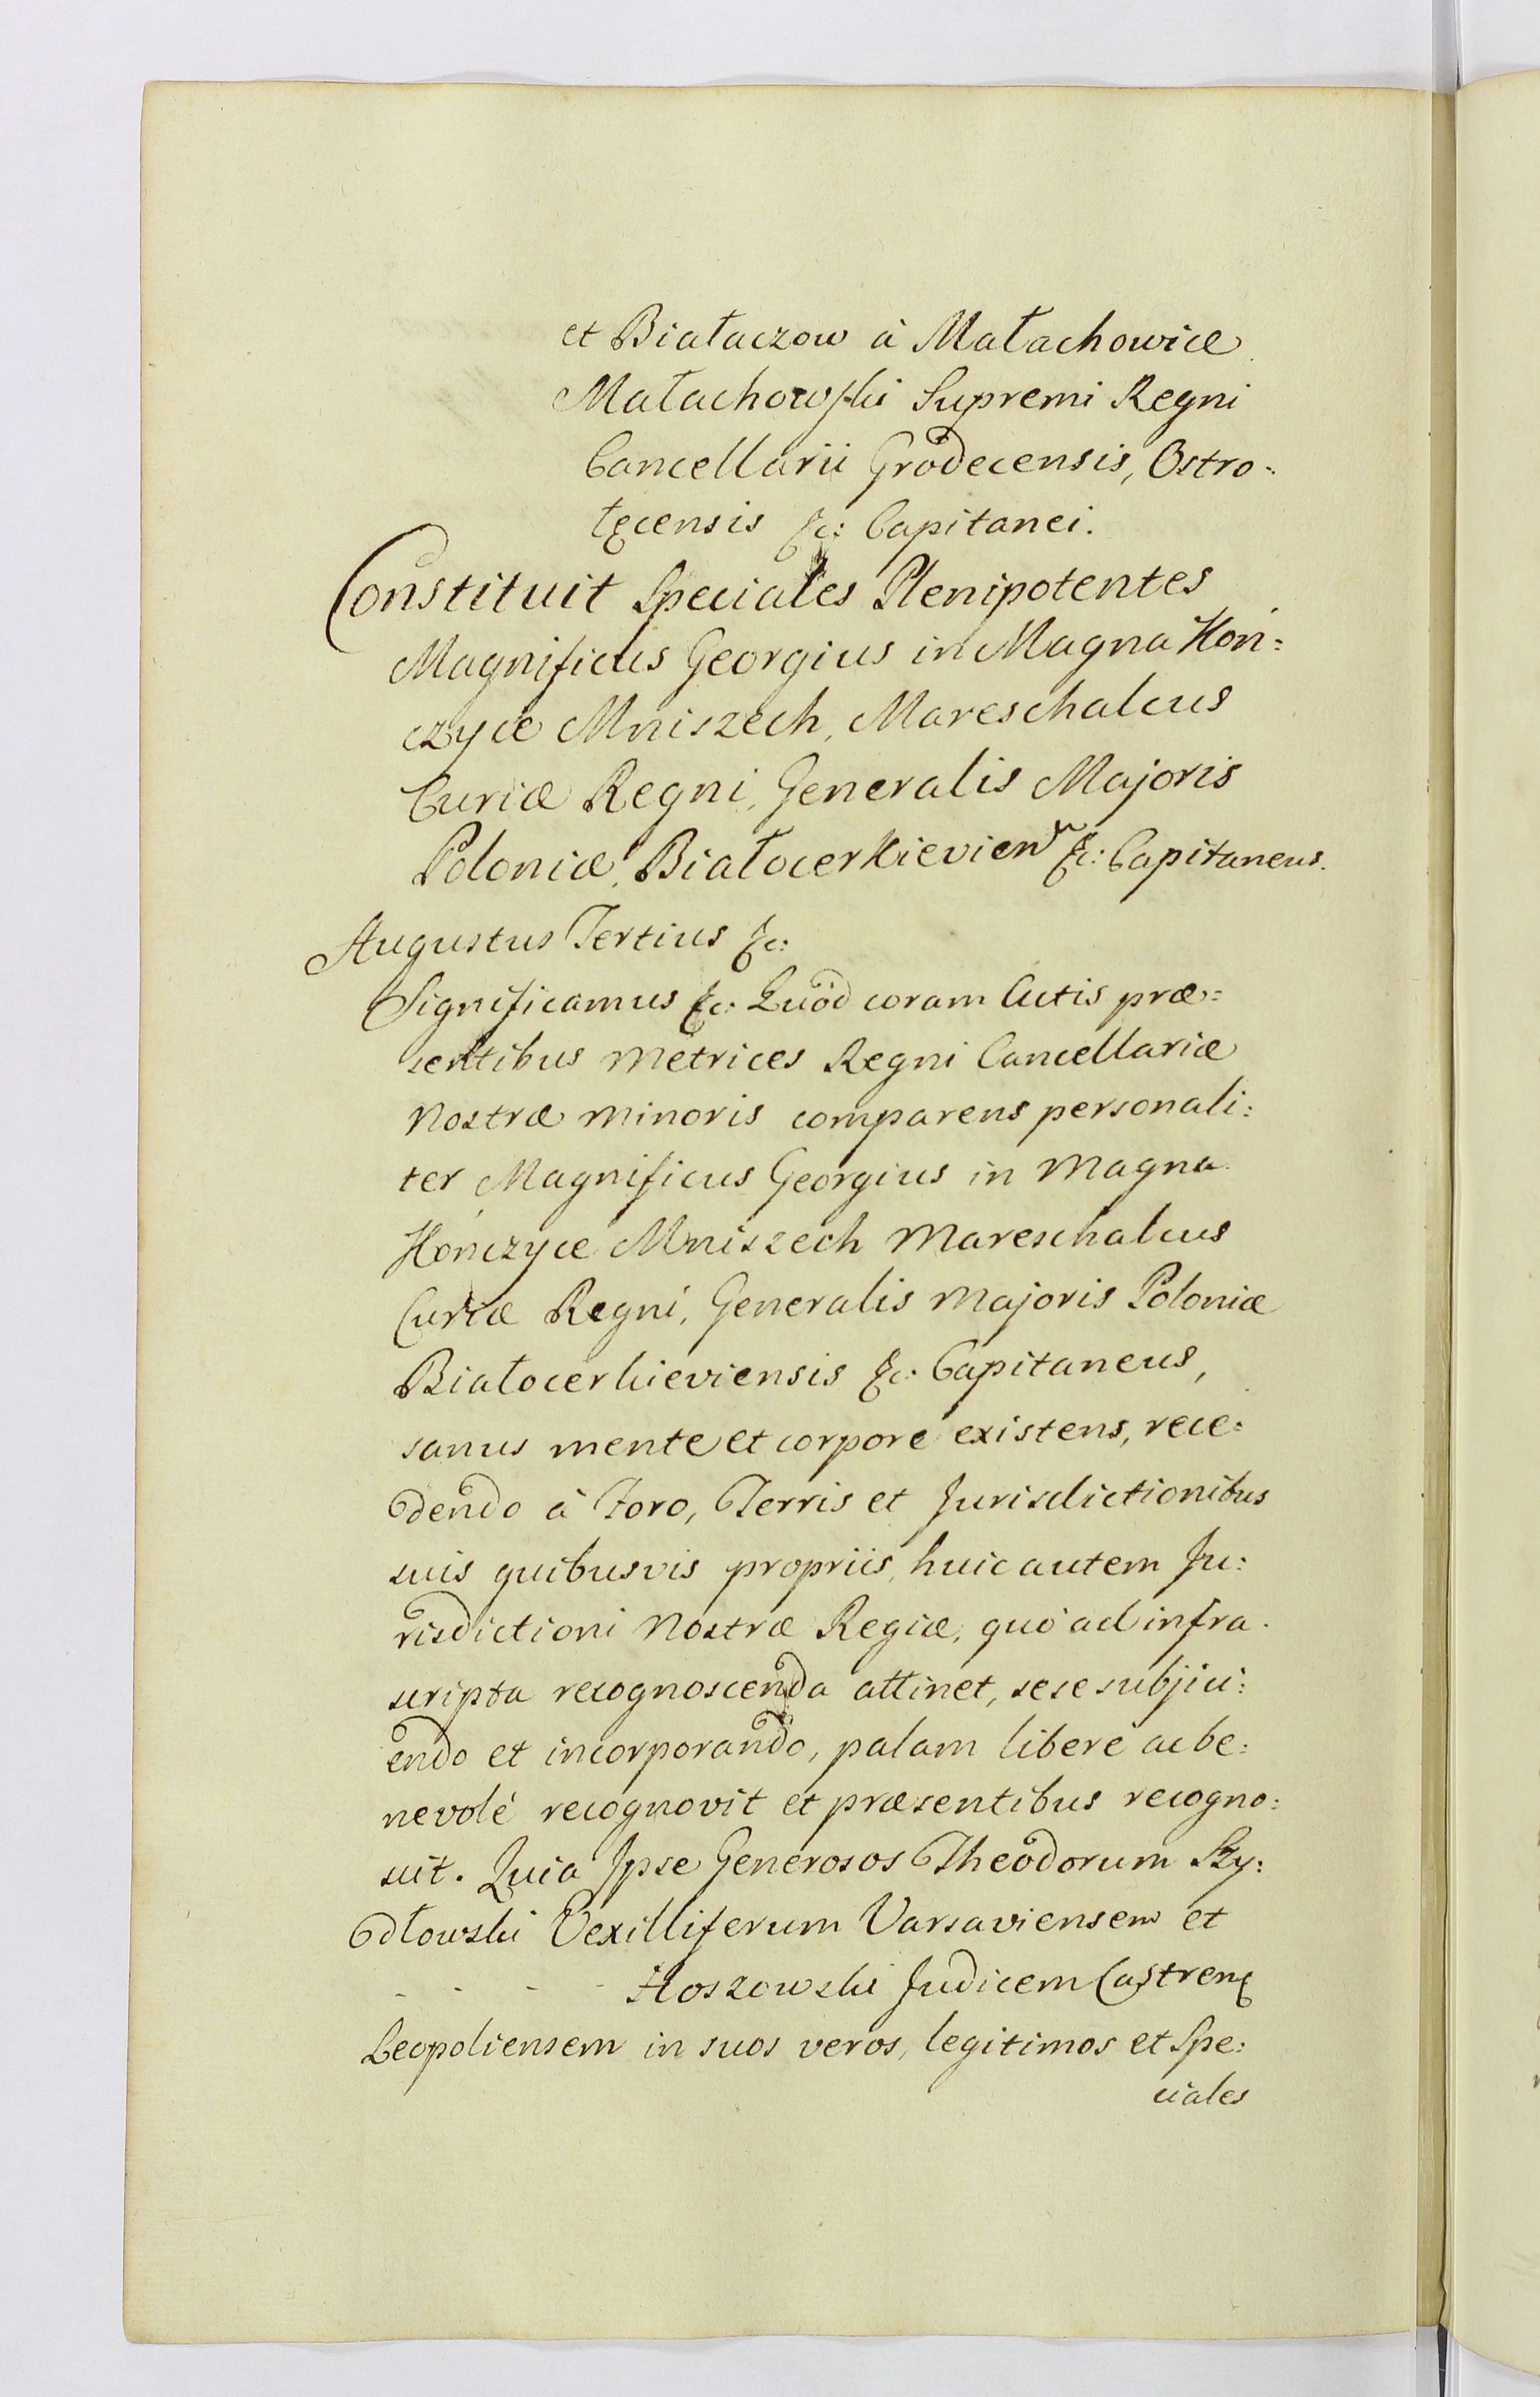 et Białaczow à Małachowice
Małachowski Supremi Regni
Cancellarii Grodecensis, Ostro=
łęcensis &c: Capitanei.
Constituit Speciales Plenipotentes
Magnificus Georgius in Magna Koń=
czyce Mniszech, Mareschalcus
Curiæ Regni, Generalis Majoris
Poloniæ, Białocerkievien &c: Capitaneus.
Augustus Tertius &c:
Significamus &c: Quòd coram Actis præ=
sentibus Metrices Regni Cancellariæ
Nostræ Minoris comparens personali=
ter Magnificus Georgius in Magna
Kończyce Mniszech Mareschalcus
Curiæ Regni, Generalis Majoris Poloniæ
Białocerkieviensis &c: Capitaneus,
sanus mente et corpore existens, rece=
dendo à Foro, Terris et Jurisdictionibus
suis quibusvis propriis, huic autem Ju=
risdictioni Nostræ Regiæ, quò ad infra
scripta recognoscenda attinet, sese subjici=
endo et incorporando, palam liberè ac be=
nevolè recognovit et præsentibus recogno=
scit. Quia Ipse Generosos Theodorum Szy=
dłowski Vexilliferum Varsaviensem et
- - - - Hoszowski Judicem Castren
Leopoliensem in suos veros, legitimos et Spe=
ciales